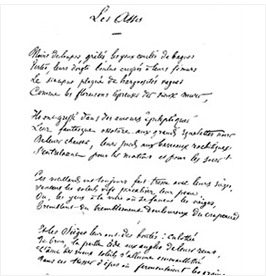 Les Assis
Noirs de loupes, grêlés, les yeux cerclés de bagues
Vertes, leurs doigts boulus crispés à leurs fémurs
Le sinciput plaqué de hargnosités vagues
Comme les floraisons lépreuses des vieux murs;
Ils ont greffé dans des amours épileptiques
Leur fantasque ossature aux grands squelettes noirs
De leurs chaises; leurs pieds aux barreaux rachitiques
S'entrelacent pour les matins et pour les soirs!
Ces vieillards ont toujours fait tresse avec leurs sièges,
Sentant les soleils vifs percaliser leur peau
Ou, les yeux à la vitre où se fanent les neiges,
Tremblant du tremblement douloureux du crapaud
Et les Sièges leur ont des bontés: culottée
De brun, la paille cède aux angles de leurs reins;
L'âme des vieux soleils s'allume emmaillotée
Dans ces tresses d'épis où fermentaient les grains